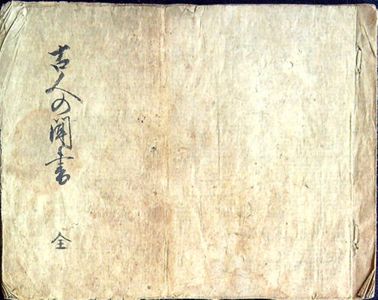 古人の聞書
全